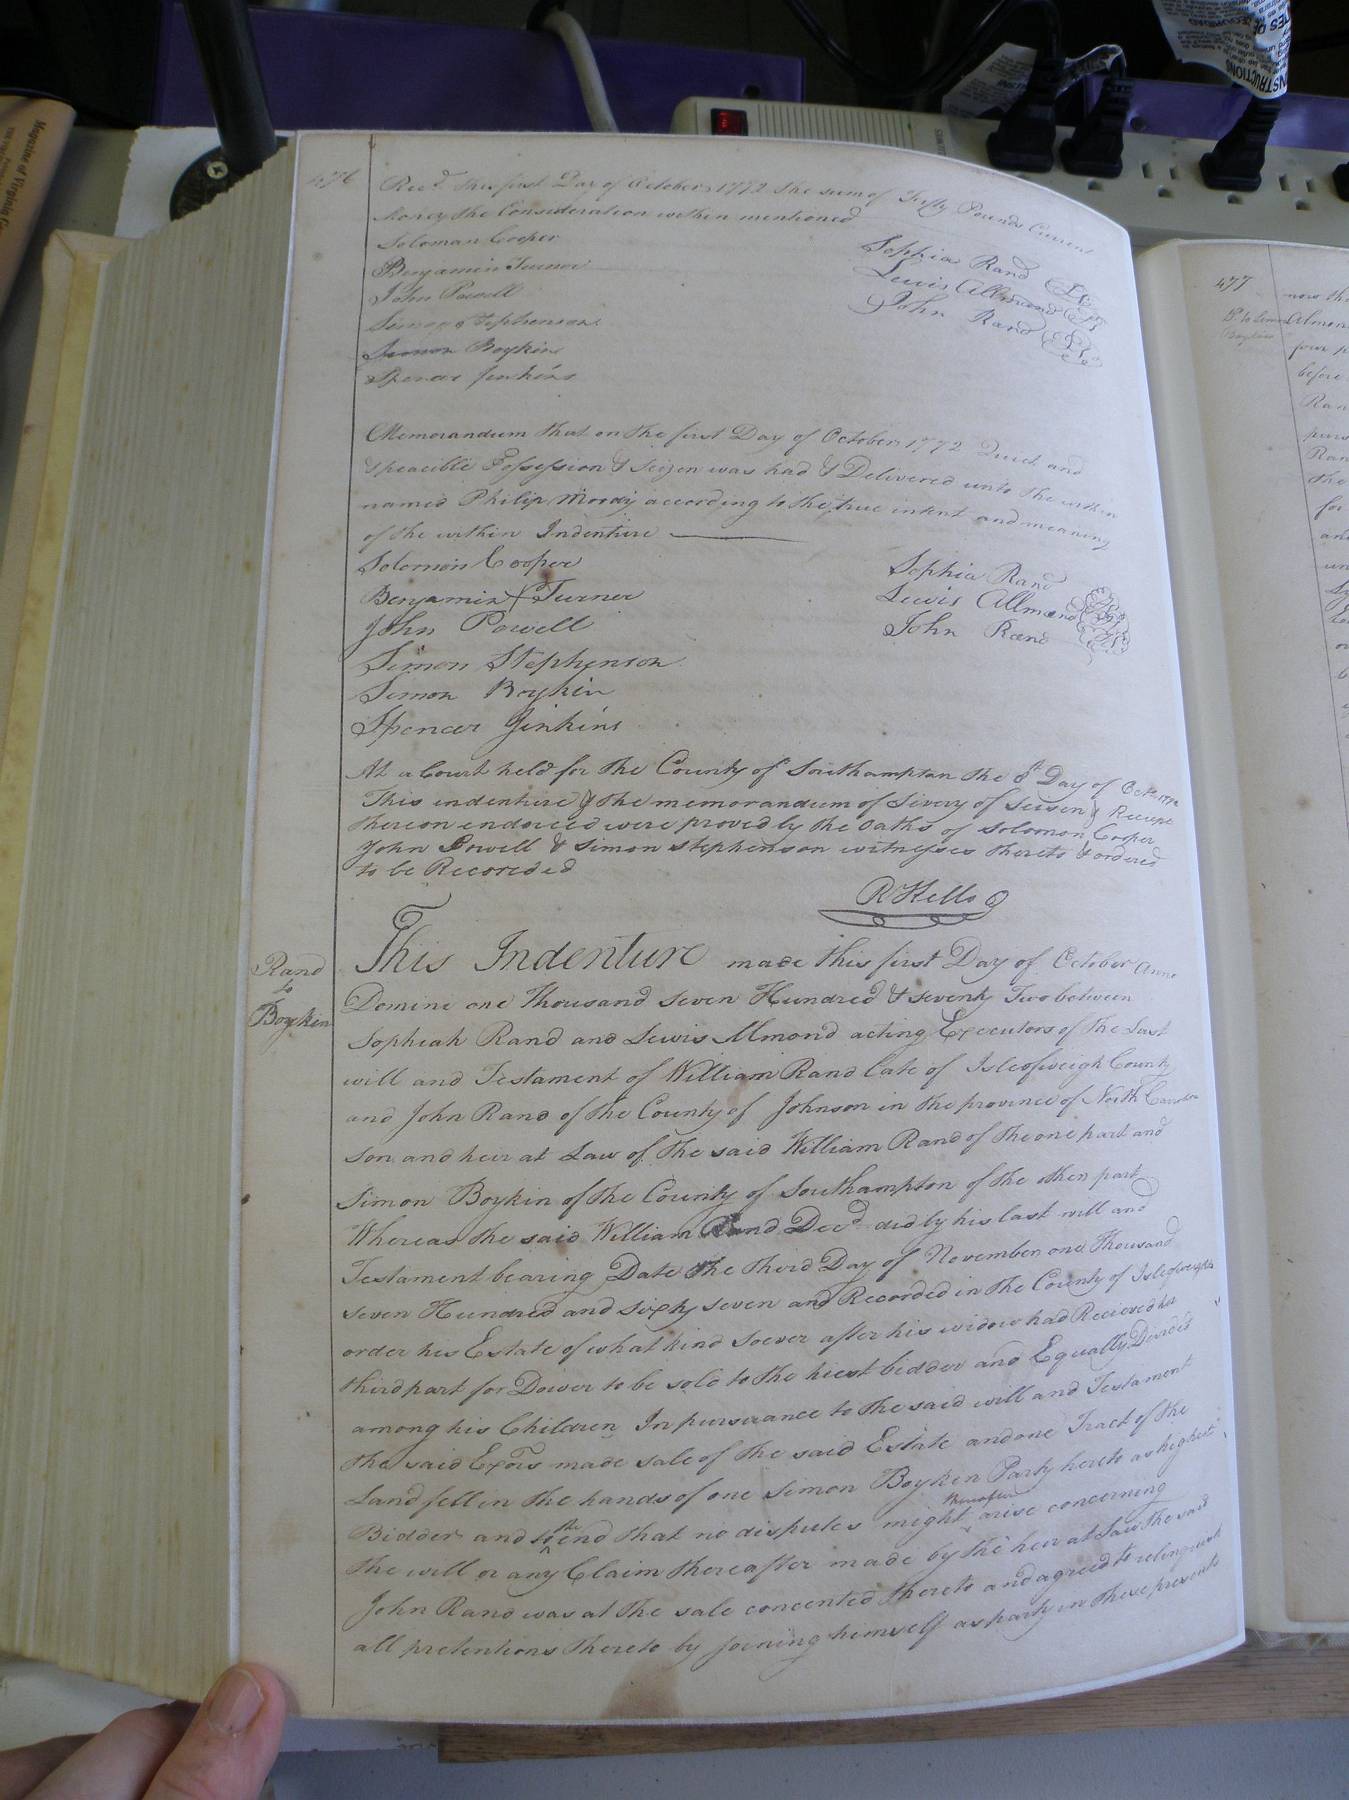 476
Recd. this first Day of October 1772 the sum of Fifty Pounds Current
Money the Consideration within mentioned
Soloman Cooper
Benjamin Turner
John Powell
Simon Stephenson
Simon Boykin
Spencer Jenkins
Sophia Rand
Lewis Allmand
John Rand
Memorandum that on the first Day of October 1772 Quiet and
& peacible Possession & Seizen was had & Delivered unto the within
named Philip Moody according to the true intent and meaning
of the within Indenture
Solomon Cooper
Benjamin Turner
John Powell
Simon Stephenson
Simon Boykin
Spencer Jinkins
Sophia Rand
Lewis Allmand
John Rand
At a Court held for the County of Southampton the 8th Day of Octr. 1772
This indenture & the memorandum of Livery of Seisen & Receipt
thereon endorced were proved by the Oaths of Solomon Cooper
John Powell & Simon Stephenson witnesses thereto & ordered
to be Recorded
R Kello
Rand
to
Boykin
This Indenture made this first Day of October Anno
Domini one Thousand Seven Hundred & seventy Two between
Sophiah Rand and Lewis Almond acting Executors of the Last
will and Testament of William Rand Late of Isleofweigh County
and John Rand of the County of Johnson in the province of North Carolina
Son and heir at Law of the said William Rand of the one part and
Simon Boykin of the County of Southampton of the other part
Whereas the said William Rand Decd did by his last will and
Testament bearing Date the third Day of November one Thousand
seven Hundred and sixty seven and Recorded in the County of Isleofweight
order his Estate of what kind soever after his widow had Recieved her
third part for Dower to be sold to the hiest bidder and Equally Divided
among his Children In pursuance to the said will and Testament
the said Exors made sale of the said Estate and one Tract of the
Land fell in the hands of one Simon Boyken Party hereto as highest
Bidder and to the end that no disputes might thereafter arise concerning
the will or any Claim thereafter made by the heir at Law the said
John Rand was at the sale concented thereto and agreed to relinquish
all pretentions thereto by joining himself as party in these presents
477
now th
Do to Simon
Boykin
Almon
four p
before
Ran
purs
Ran
the
for
and
un